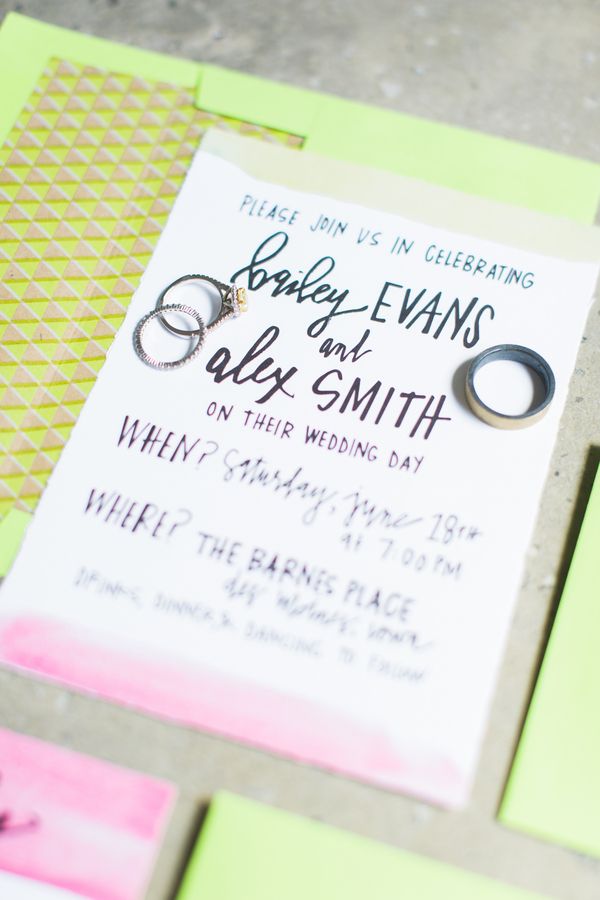 PLEASE JOIN US IN CELEBRATING
bailey EVANS
and
alex SMITH
ON THEIR WEDDING DAY
WHEN? Saturday, june 18TH
at 7:00 PM
WHERE? THE BARNES PLACE
des Moines, iowa
DRINKS, DINNER, & DANCING TO FOLLOW